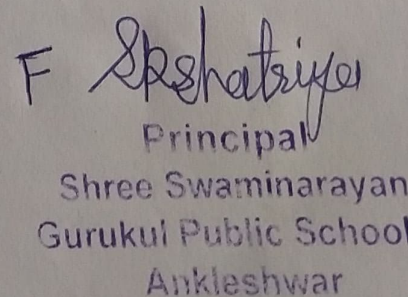 F Skshatriya
Principal
Shree Swaminarayan
Gurukul Public School
Ankleshwar